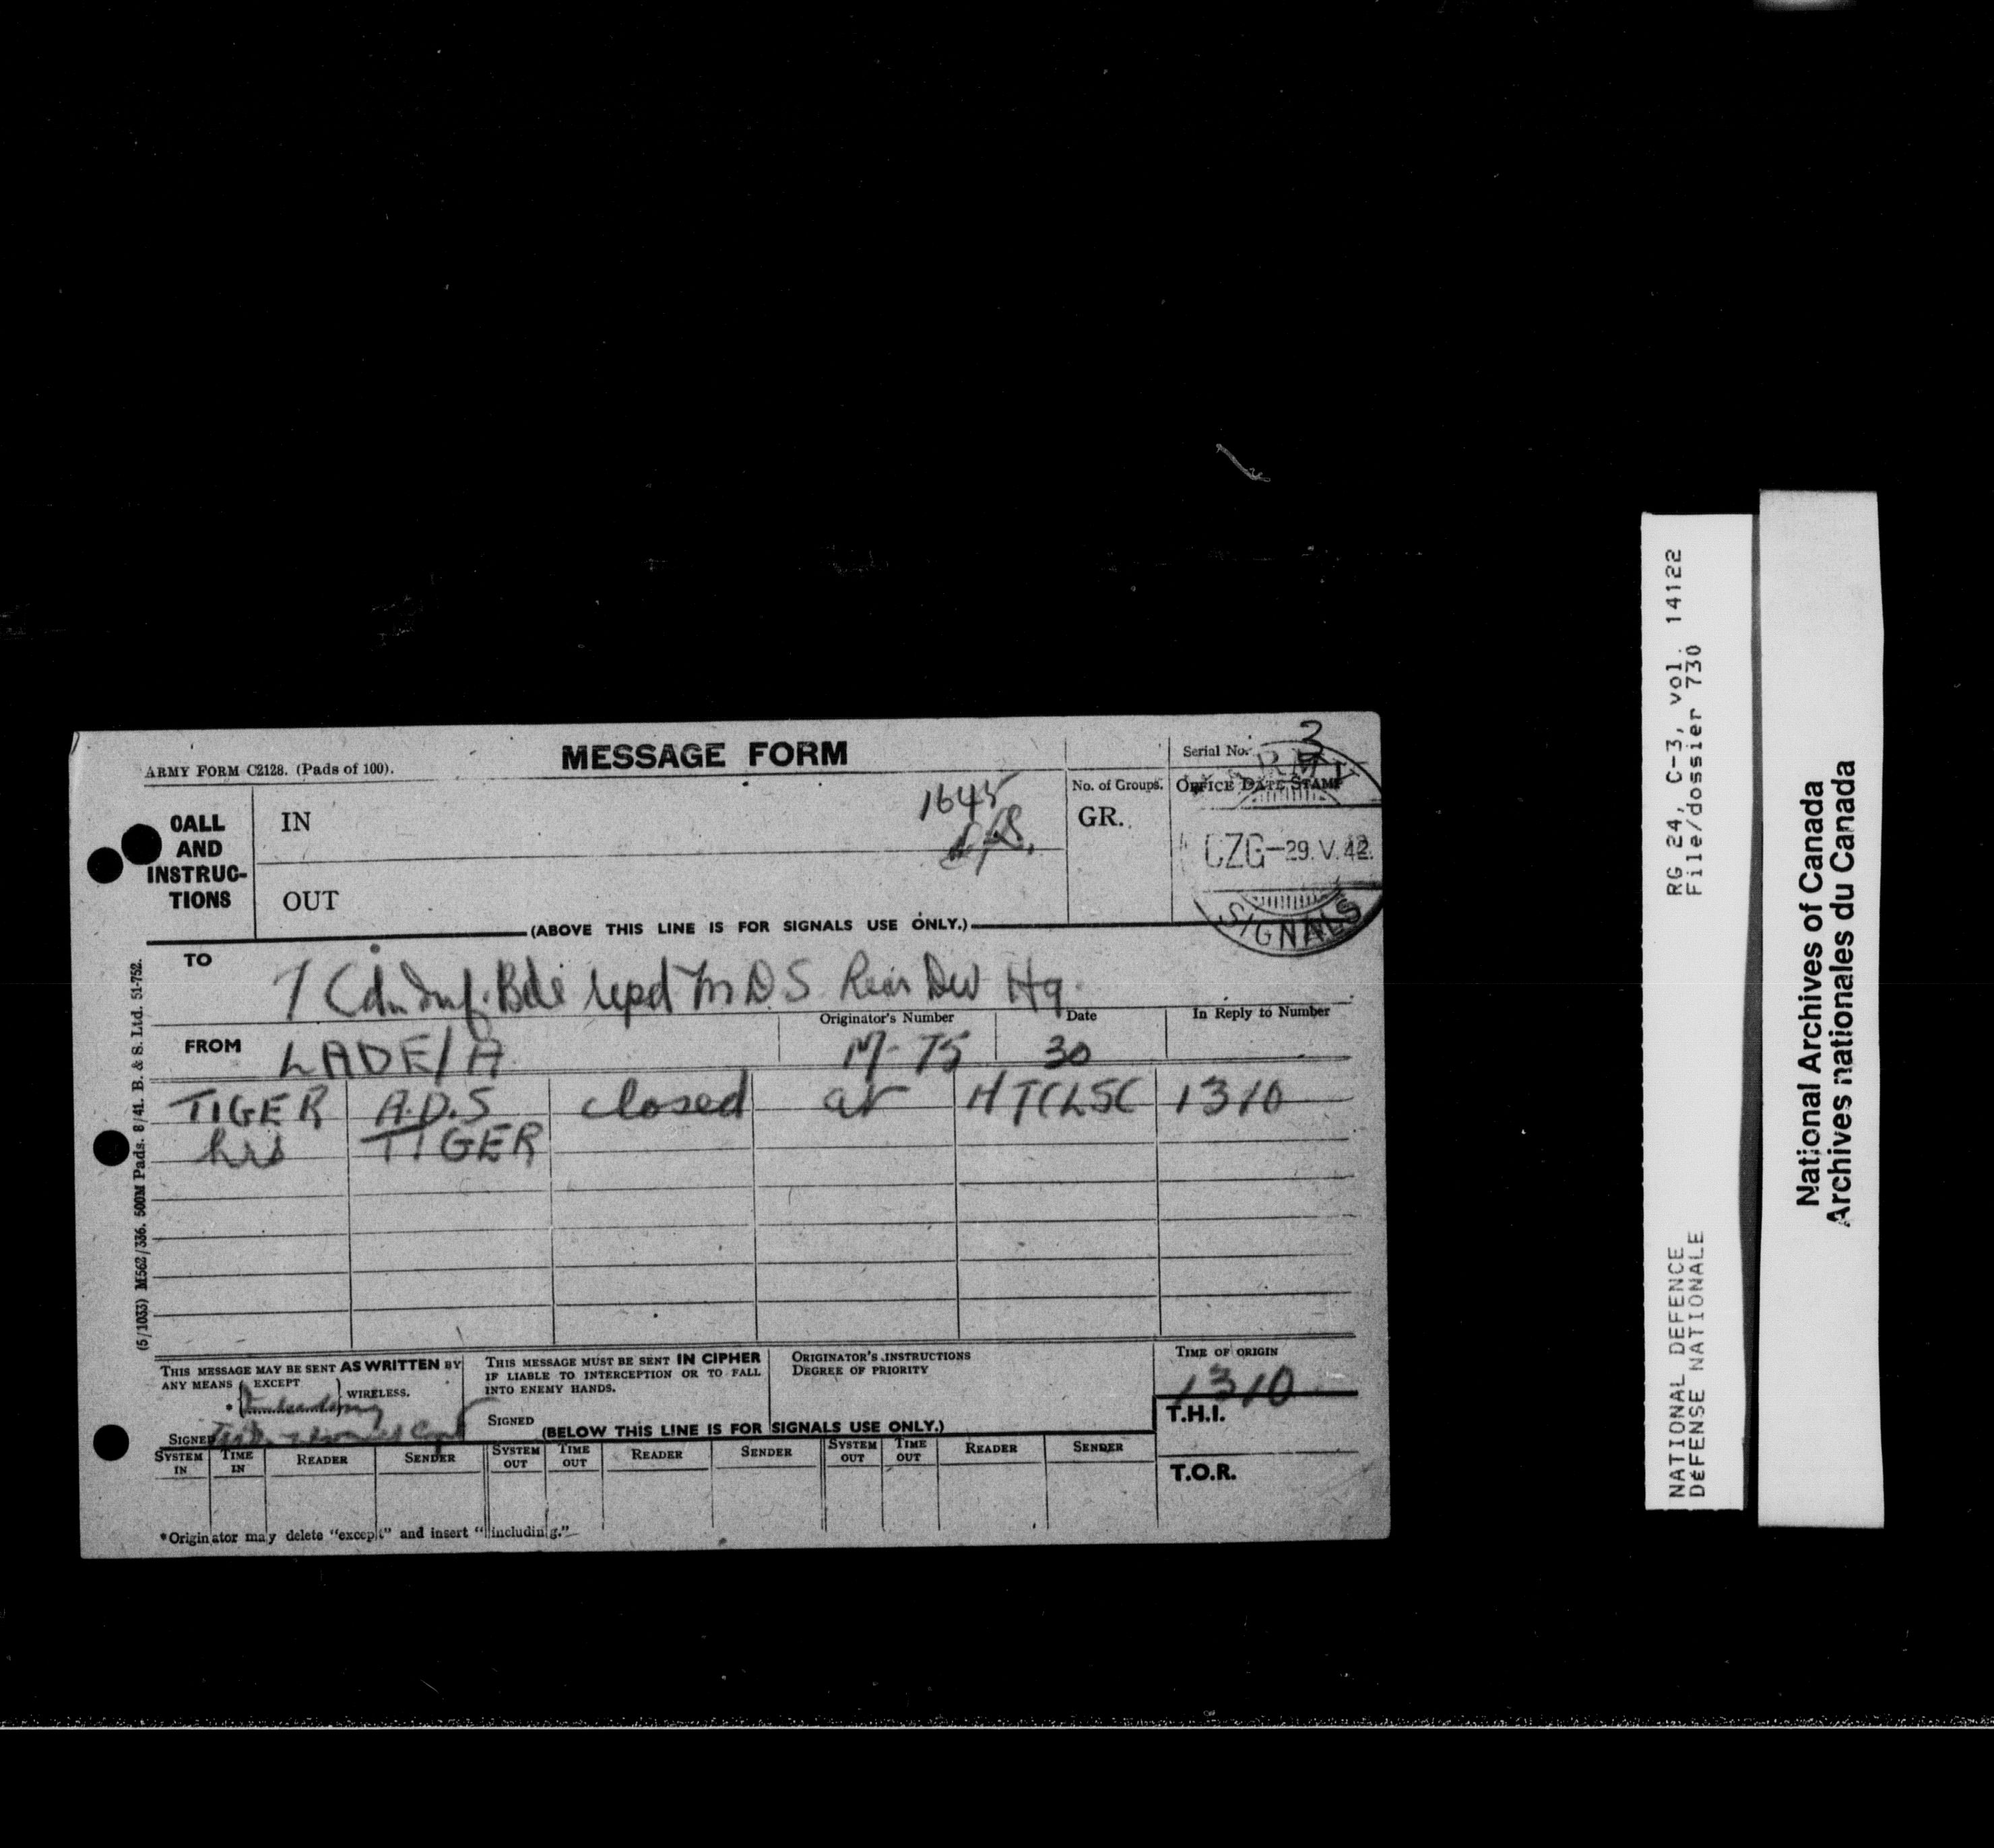 MESSAGE FORM
ARMY FORM C2128. (Pads of 100).
Serial No. 3
CALL AND INSTRUC-TIONS
IN
1645
No. of Groups.
GR.
OFFICE DATE STAMP
ARMY
CZG-29.V.42.
SIGNALS
OUT
(ABOVE THIS LINE IS FOR SIGNALS USE ONLY.)
TO
7 Cdn Inf. Bde repd M.D.S Rear Div Hq.
FROM
LADE/A
Originator's Number
M-75
Date
30
In Reply to Number
TIGER A.D.S closed at HTCLSC 1310
hrs TIGER
(5/1033) M562/336. 500M Pads. 8/41. B. & S. Ltd. 51-752.
THIS MESSAGE MAY BE SENT AS WRITTEN BY
ANY MEANS { EXCEPT } WIRELESS.
*
SIGNED
THIS MESSAGE MUST BE SENT IN CIPHER
IF LIABLE TO INTERCEPTION OR TO FALL
INTO ENEMY HANDS.
SIGNED
ORIGINATOR'S INSTRUCTIONS
DEGREE OF PRIORITY
TIME OF ORIGIN
1310
T.H.I.
T.O.R.
(BELOW THIS LINE IS FOR SIGNALS USE ONLY.)
SYSTEM IN TIME IN READER SENDER SYSTEM OUT TIME OUT READER SENDER SYSTEM OUT TIME OUT READER SENDER
*Originator may delete "except" and insert "including."
RG 24, C-3, vol. 14122
File/dossier 730
NATIONAL DEFENCE
DéFENSE NATIONALE
National Archives of Canada
Archives nationales du Canada